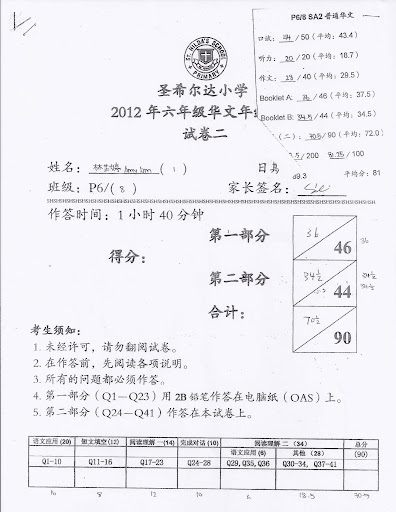 P6/8 SA2 普通华文
口试: 44 / 50 (平均: 43.4)
听力: 20 / 20 (平均: 18.7)
作文: 23 / 40 (平均: 29.5)
Booklet A: 36 / 46 (平均: 37.5)
Booklet B: 34.5 / 44 (平均: 34.5)
(二): 70.5 / 90 (平均: 72.0)
.5 / 200 81.25 / 100
69.3 平均分: 81
ST. HILDA'S SCHOOL
PRIMARY
圣希尔达小学
2012 年六年级华文年
试卷二
姓名: (1) 日
班级: P6/(8) 家长签名:
作答时间: 1 小时 40 分钟
得分:
第一部分 36 46 36
第二部分 34½ 44 34½
合计: 70½ 90
考生须知:
1. 未经许可, 请勿翻阅试卷。
2. 在作答前, 先阅读各项说明。
3. 所有的问题都必须作答。
4. 第一部分 (Q1—Q23) 用 2B 铅笔作答在电脑纸 (OAS) 上。
5. 第二部分 (Q24—Q41) 作答在本试卷上。
语文应用 (20) 短文填空(12) 阅读理解一(14) 完成对话 (10) 阅读理解 二 (34) 总分
语文应用 (6) 其他 (28) (90)
Q1-10 Q11-16 Q17-23 Q24-28 Q29, Q35, Q36 Q30-34, Q37-41
8 12 10 18.5 70.5